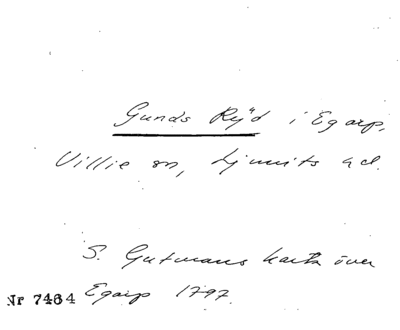 Gunds Röjd i Egarp,
Villie sn, Ljunits hd.
S. Gutmans karta över
Nr 7484 Egarp 1797.